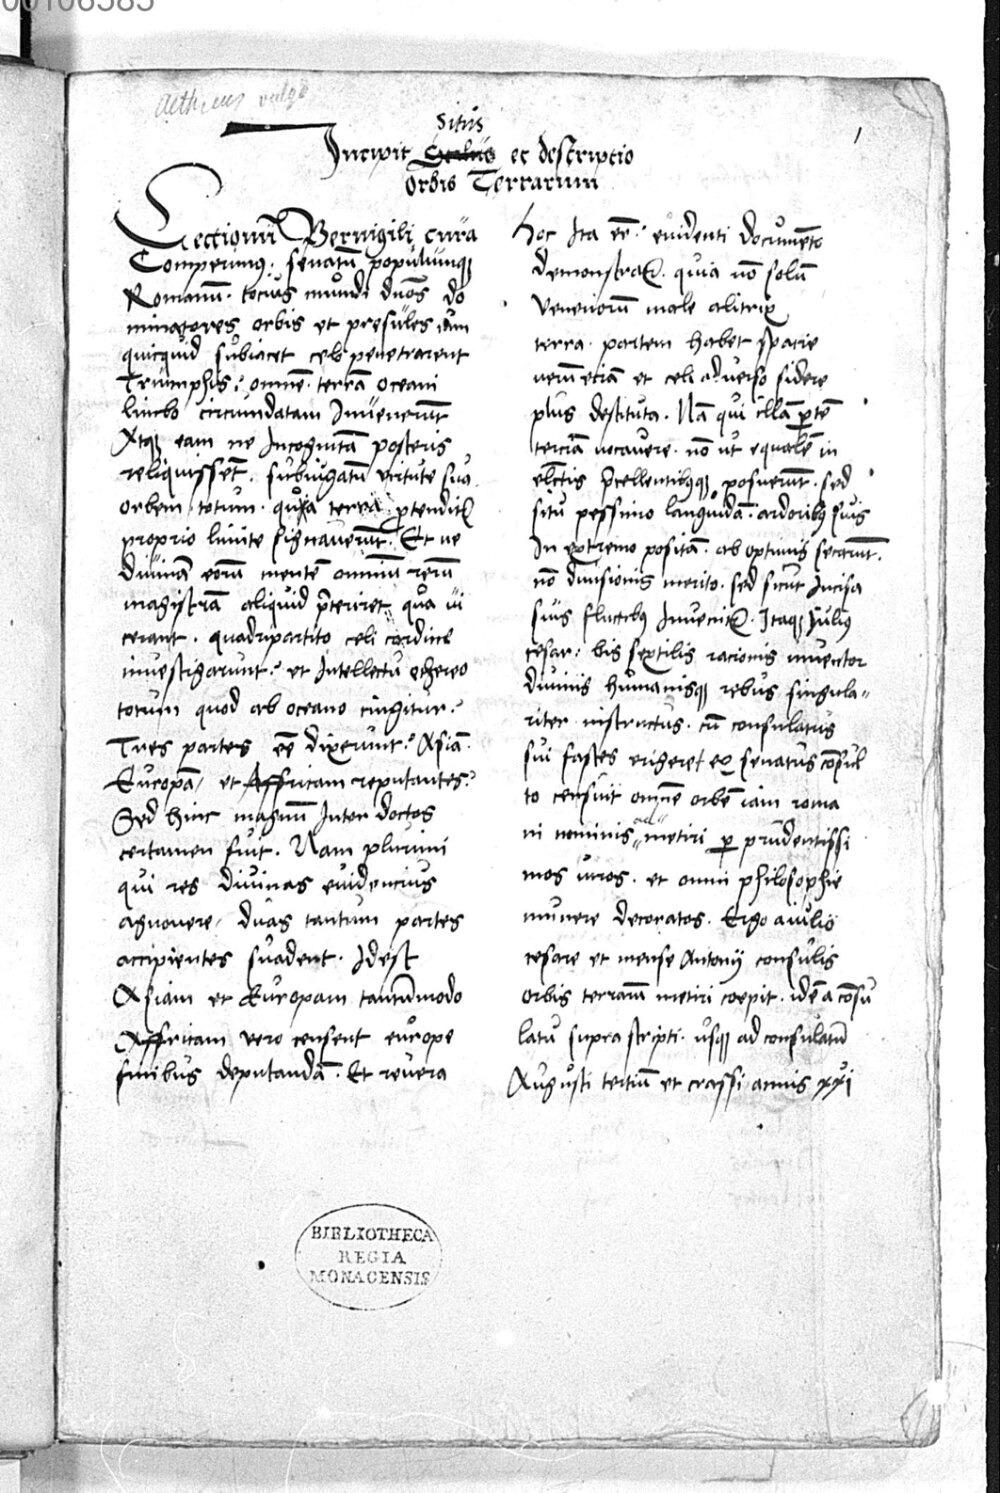 00106585
Aethicus vulgo
1
Situs
Incipit et descriptio
Orbis Terrarum
Lectionū Pervigili cura
Comperimus. senatū populumqꝫ
Romanū. tocius mundi dn̄os do
minatores orbis et presules cum
quicquid subiacet celo penetrarent
Triumphis. omnē. terrā oceani
limbo circumdatam Invenerūt
Atqꝫ eam ne Incognitā posteris
reliquissēt. subiugatū virtute sua
orbem totum. qua terra ptenditꝛ
proprio limite signaverūt. Et ne
divinā eorū mentē omniū rerū
magistrā aliquid p̄teriret qua vi
cerant. quadripartito celi cardine
investigarunt. et Intellectu ethereo
totum quod ab oceano cingitur.
Tres partes eē dixerunt. Asiā.
Europā, et Affricam reputantes.
Sed hinc magnū Inter doctos
certamen fuit. Nam plurimi
qui res divinas evidencius
agnovere, duas tantum partes
accipientes suadent. Idest
Asiam et Europam tantūmodo
Affricam vero censent europe
finibus deputandā. Et revera
Hoc Ita eē. evidenti documēto
demonstratꝛ. quia nō solū
Venenorū male alitrix
terra. partem habet spacie
verū eciā et celi adverso sidere
plus destituta. Nā qui illā ptē
terciā vocavere. nō ut equalē in
elc̄tis p̄cellentibusqꝫ posuerūt. sed
situ pessimo languidā. ardoribus suis
In extremo positā. ab optimis secarūt.
nō divisionis merito. sed sicut Incisa
suis fluctibus Invenitꝛ. Itaqꝫ Iulius
cesar. bis sextilis racionis inventor
divinis humanisqꝫ rebus singula=
riter instructus. cū consulatus
sui fastes erigeret ex senatus cōsul
to censuit omnē orbē iam roma
ni nominis ad metiri per prudentissi
mos viros. et omni philosophie
munere decoratos. Ergo a iulio
cesare et mense Antonij consulis
orbis terrarū metiri coepit. idē a cōsu
latu supra scripti. usqꝫ ad consulatū
Augusti tertiū et crassi annis xxi
BIBLIOTHECA
REGIA
MONACENSIS